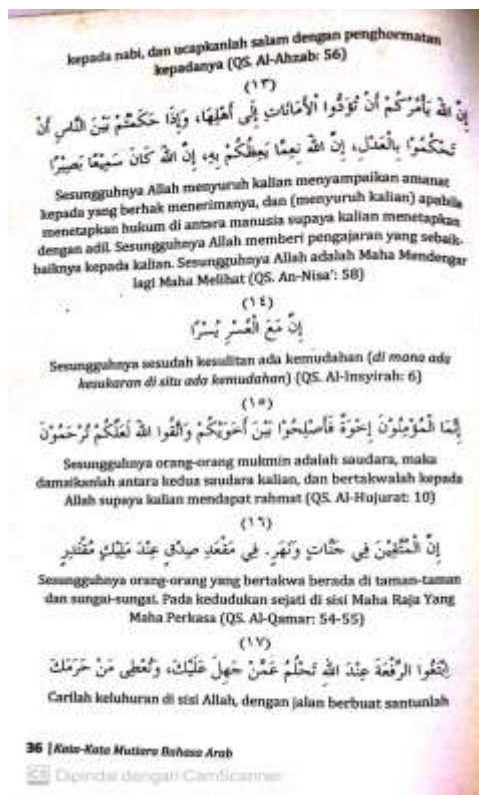 kepada nabi, dan ucapkanlah salam dengan penghormatan
kepadanya (QS. Al-Ahzab: 56)
(١٣)
إِنَّ اللهَ يَأْمُرُكُمْ أَنْ تُؤَدُّوا الْأَمَانَاتِ إِلَى أَهْلِهَا، وَإِذَا حَكَمْتُمْ بَيْنَ النَّاسِ أَنْ
تَحْكُمُوْا بِالْعَدْلِ، إِنَّ اللهَ نِعِمَّا يَعِظُكُمْ بِهِ، إِنَّ اللهَ كَانَ سَمِيْعًا بَصِيْرًا
Sesungguhnya Allah menyuruh kalian menyampaikan amanat
kepada yang berhak menerimanya, dan (menyuruh kalian) apabila
menetapkan hukum di antara manusia supaya kalian menetapkan
dengan adil. Sesungguhnya Allah memberi pengajaran yang sebaik-
baiknya kepada kalian. Sesungguhnya Allah adalah Maha Mendengar
lagi Maha Melihat (QS. An-Nisa': 58)
(١٤)
إِنَّ مَعَ الْعُسْرِ يُسْرًا
Sesungguhnya sesudah kesulitan ada kemudahan (di mana ada
kesukaran di situ ada kemudahan) (QS. Al-Insyirah: 6)
(١٥)
إِنَّمَا الْمُؤْمِنُوْنَ إِخْوَةٌ فَأَصْلِحُوْا بَيْنَ أَخَوَيْكُمْ وَاتَّقُوا اللهَ لَعَلَّكُمْ تُرْحَمُوْنَ
Sesungguhnya orang-orang mukmin adalah saudara, maka
damaikanlah antara kedua saudara kalian, dan bertakwalah kepada
Allah supaya kalian mendapat rahmat (QS. Al-Hujurat: 10)
(١٦)
إِنَّ الْمُتَّقِيْنَ فِي جَنَّاتٍ وَنَهَرٍ. فِي مَقْعَدِ صِدْقٍ عِنْدَ مَلِيْكٍ مُقْتَدِرٍ
Sesungguhnya orang-orang yang bertakwa berada di taman-taman
dan sungai-sungai. Pada kedudukan sejati di sisi Maha Raja Yang
Maha Perkasa (QS. Al-Qamar: 54-55)
(١٧)
اِبْتَغُوا الرِّفْعَةَ عِنْدَ اللهِ تَحْلُمُ عَمَّنْ جَهِلَ عَلَيْكَ، وَتُعْطِى مَنْ حَرَمَكَ
Carilah keluhuran di sisi Allah, dengan jalan berbuat santunlah
36 | Kata-Kata Mutiara Bahasa Arab
CS Dipindai dengan CamScanner